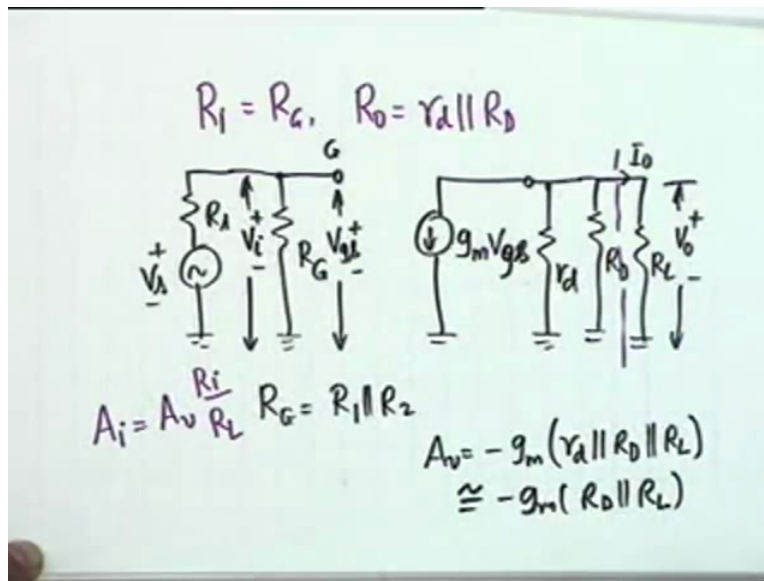 R_i = R_G, R_0 = r_d || R_D
G
I_0
R_s
+
V_i
-
R_G
+
V_gs
-
+
V_s
-
g_m V_gs
r_d
R_D
R_L
+
V_0
-
A_i = A_v R_i/R_L
R_G = R_1 || R_2
A_v = - g_m (r_d || R_D || R_L)
≅ - g_m ( R_D || R_L)